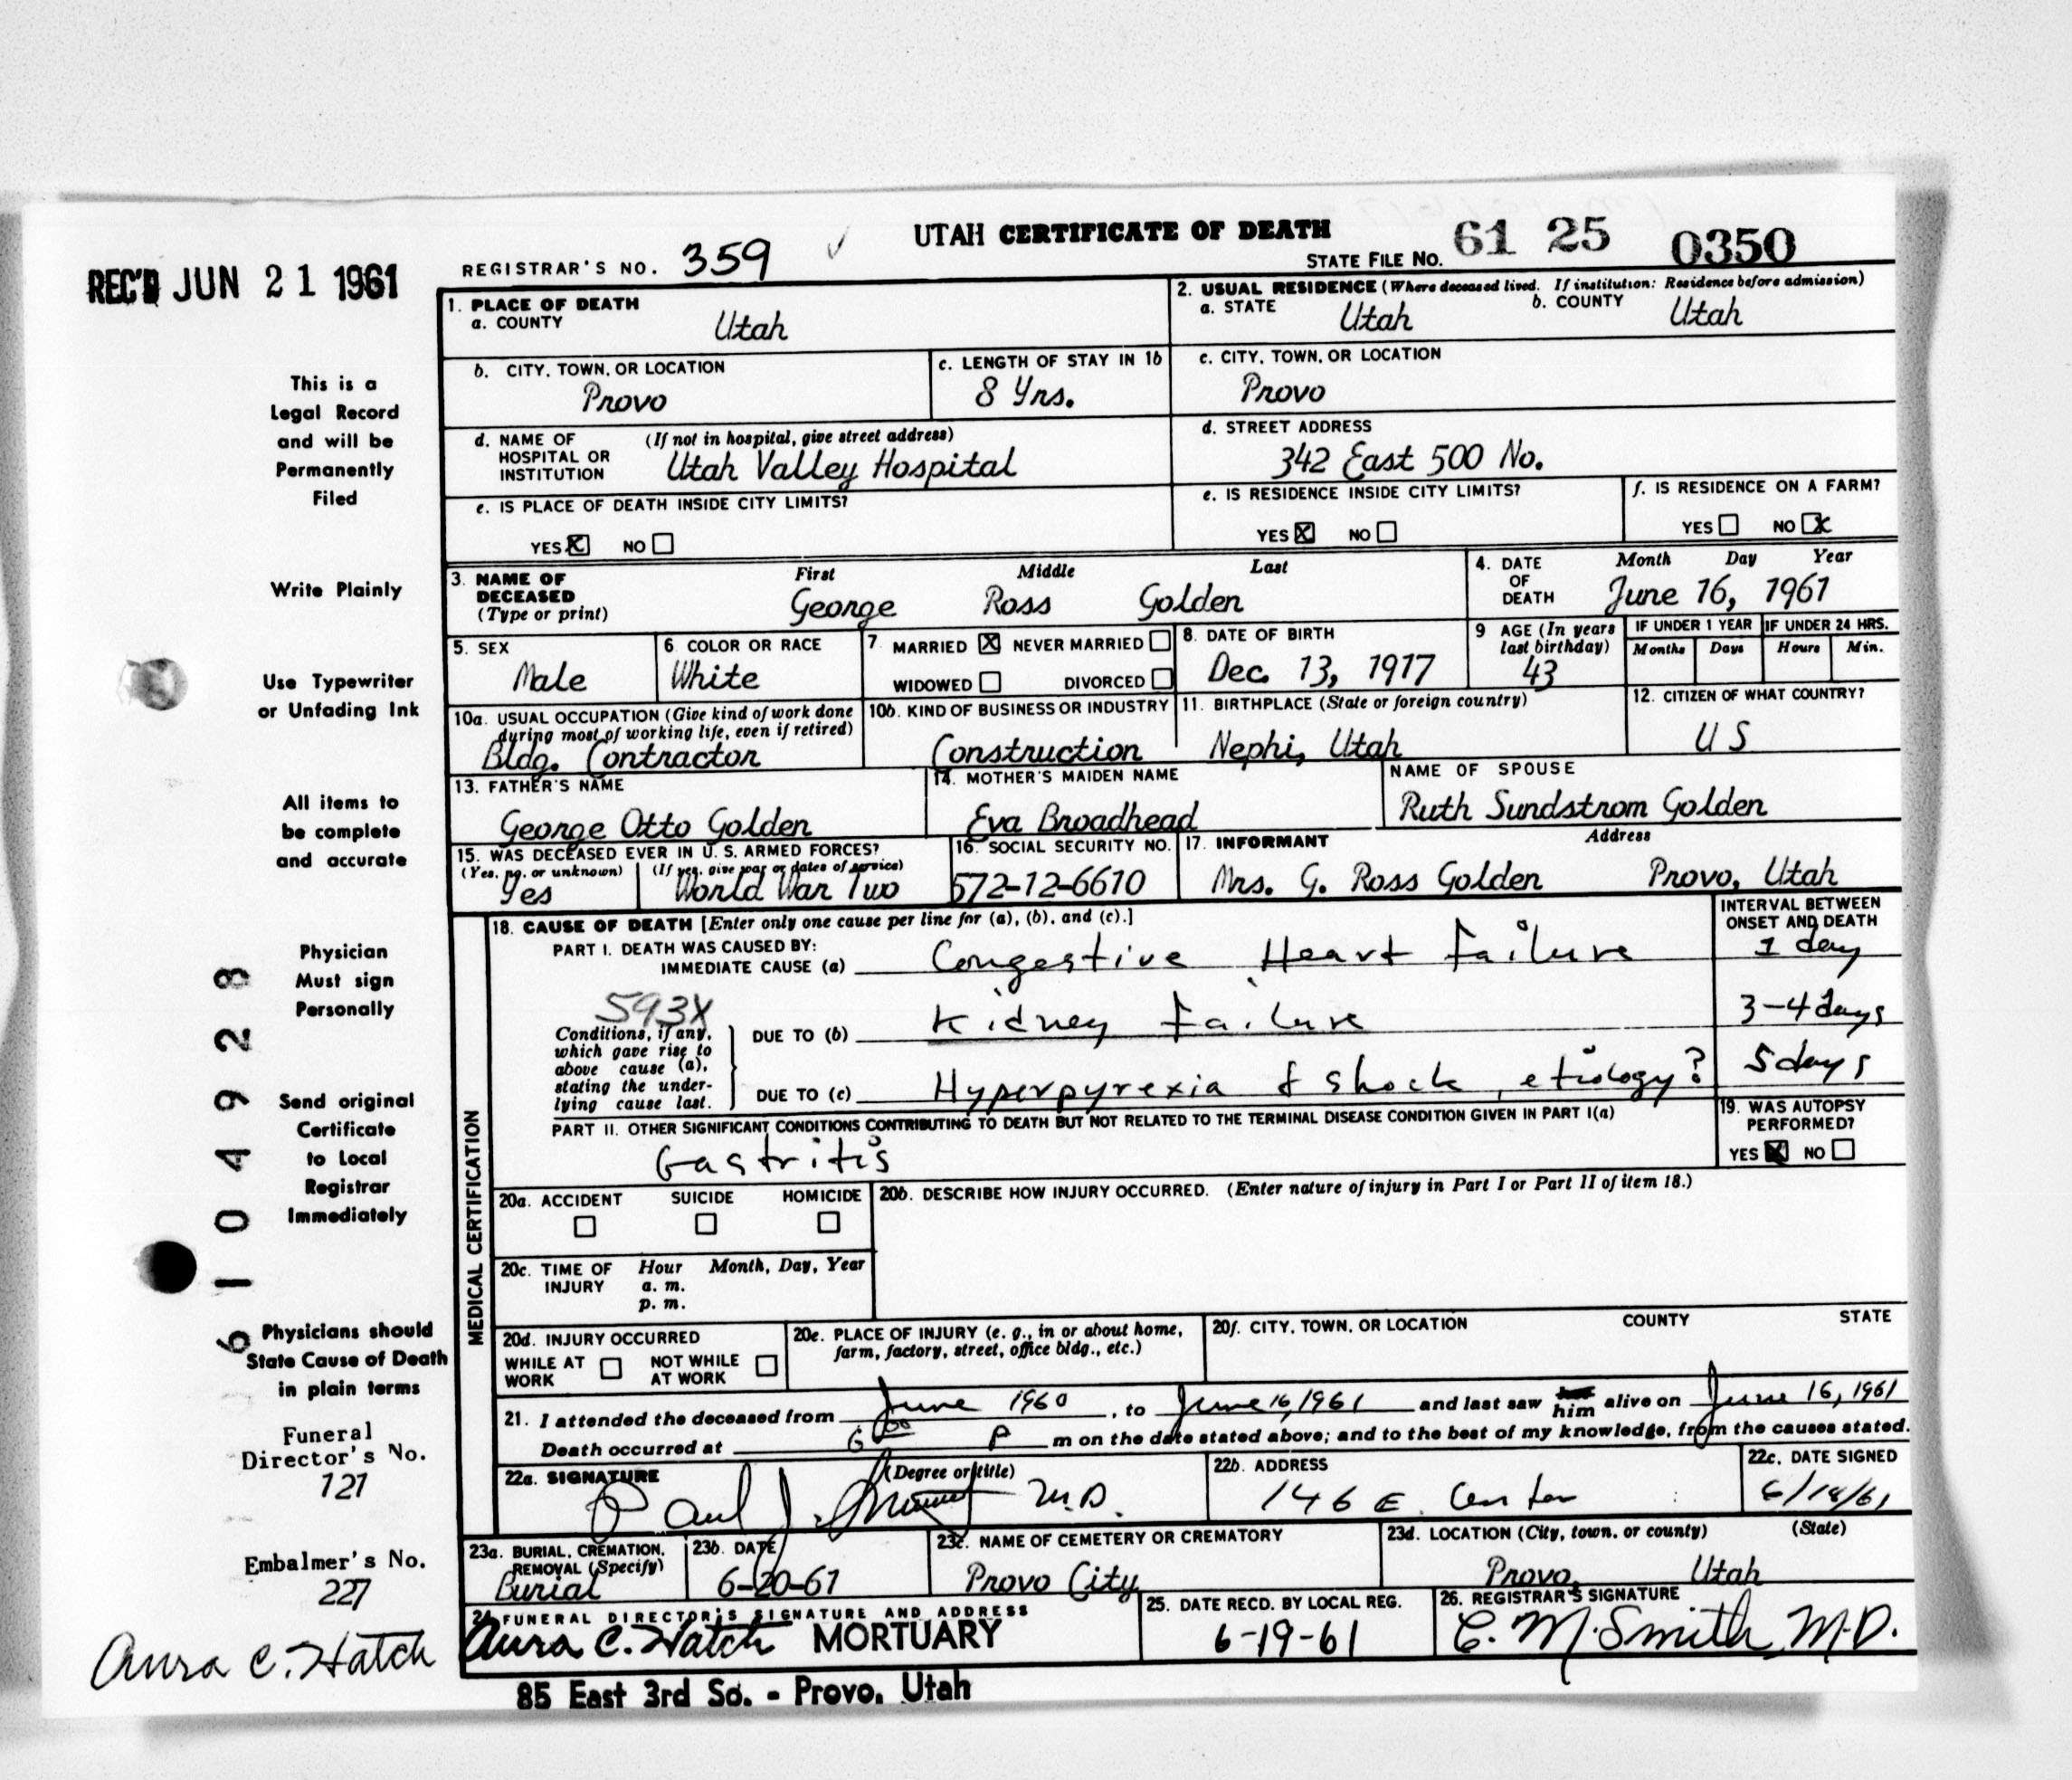 UTAH CERTIFICATE OF DEATH
REC'D JUN 21 1961
REGISTRAR'S NO. 359
STATE FILE NO. 61 25 0350
1. PLACE OF DEATH
a. COUNTY
Utah
2. USUAL RESIDENCE (Where deceased lived. If institution: Residence before admission)
a. STATE Utah
b. COUNTY Utah
b. CITY, TOWN, OR LOCATION
Provo
c. LENGTH OF STAY IN 1b
8 Yrs.
c. CITY, TOWN, OR LOCATION
Provo
d. NAME OF HOSPITAL OR INSTITUTION (If not in hospital, give street address)
Utah Valley Hospital
d. STREET ADDRESS
342 East 500 No.
e. IS PLACE OF DEATH INSIDE CITY LIMITS?
YES X NO
e. IS RESIDENCE INSIDE CITY LIMITS?
YES X NO
f. IS RESIDENCE ON A FARM?
YES NO X
3. NAME OF DECEASED (Type or print)
First Middle Last
George Ross Golden
4. DATE OF DEATH
Month Day Year
June 16, 1961
5. SEX
Male
6. COLOR OR RACE
White
7. MARRIED X NEVER MARRIED
WIDOWED DIVORCED
8. DATE OF BIRTH
Dec. 13, 1917
9 AGE (In years last birthday)
43
IF UNDER 1 YEAR
Months Days
IF UNDER 24 HRS.
Hours Min.
10a. USUAL OCCUPATION (Give kind of work done during most of working life, even if retired)
Bldg. Contractor
10b. KIND OF BUSINESS OR INDUSTRY
Construction
11. BIRTHPLACE (State or foreign country)
Nephi, Utah
12. CITIZEN OF WHAT COUNTRY?
U S
13. FATHER'S NAME
George Otto Golden
14. MOTHER'S MAIDEN NAME
Eva Broadhead
NAME OF SPOUSE
Ruth Sundstrom Golden
15. WAS DECEASED EVER IN U. S. ARMED FORCES?
(Yes, no, or unknown) (If yes, give war or dates of service)
Yes World War Two
16. SOCIAL SECURITY NO.
572-12-6610
17. INFORMANT Address
Mrs. G. Ross Golden Provo, Utah
MEDICAL CERTIFICATION
18. CAUSE OF DEATH [Enter only one cause per line for (a), (b), and (c).]
INTERVAL BETWEEN ONSET AND DEATH
PART I. DEATH WAS CAUSED BY:
IMMEDIATE CAUSE (a) Congestive Heart Failure 1 day
593X
Conditions, if any, which gave rise to above cause (a), stating the underlying cause last.
DUE TO (b) Kidney Failure 3-4 days
DUE TO (c) Hyperpyrexia & shock, etiology? 5 days
PART II. OTHER SIGNIFICANT CONDITIONS CONTRIBUTING TO DEATH BUT NOT RELATED TO THE TERMINAL DISEASE CONDITION GIVEN IN PART I(a)
Gastritis
19. WAS AUTOPSY PERFORMED?
YES X NO
20a. ACCIDENT SUICIDE HOMICIDE
20b. DESCRIBE HOW INJURY OCCURRED. (Enter nature of injury in Part I or Part II of item 18.)
20c. TIME OF INJURY Hour Month, Day, Year
a. m.
p. m.
20d. INJURY OCCURRED
WHILE AT WORK NOT WHILE AT WORK
20e. PLACE OF INJURY (e. g., in or about home, farm, factory, street, office bldg., etc.)
20f. CITY, TOWN, OR LOCATION COUNTY STATE
21. I attended the deceased from June 1960, to June 16, 1961 and last saw him alive on June 16, 1961
Death occurred at 6 00 P m on the date stated above; and to the best of my knowledge, from the causes stated.
22a. SIGNATURE (Degree or title)
Paul J. M.D.
22b. ADDRESS
146 E. Center
22c. DATE SIGNED
6/18/61
23a. BURIAL, CREMATION, REMOVAL (Specify)
Burial
23b. DATE
6-20-61
23c. NAME OF CEMETERY OR CREMATORY
Provo City
23d. LOCATION (City, town, or county) (State)
Provo, Utah
24. FUNERAL DIRECTOR'S SIGNATURE AND ADDRESS
Aura C. Hatch MORTUARY
85 East 3rd So. - Provo, Utah
25. DATE RECD. BY LOCAL REG.
6-19-61
26. REGISTRAR'S SIGNATURE
C. M. Smith, M.D.
This is a
Legal Record
and will be
Permanently
Filed
Write Plainly
Use Typewriter
or Unfading Ink
All items to
be complete
and accurate
Physician
Must sign
Personally
Send original
Certificate
to Local
Registrar
Immediately
Physicians should
State Cause of Death
in plain terms
6 1 0 4 9 2 8
Funeral
Director's No.
121
Embalmer's No.
227
Aura C. Hatch